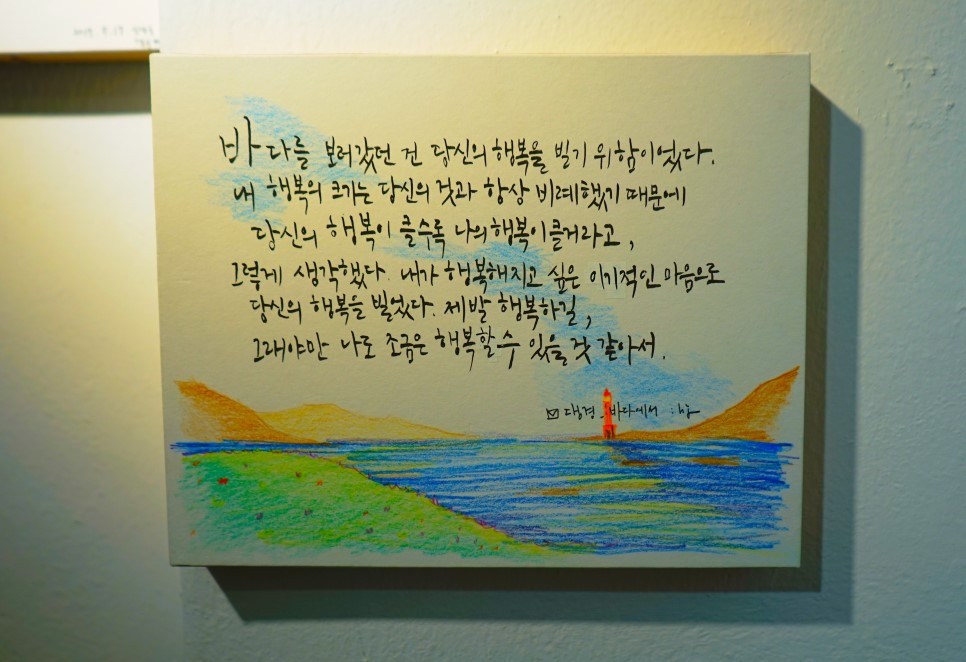 바다를 보러갔던 건 당신의 행복을 빌기 위함이었다.
내 행복의 크기는 당신의 것과 항상 비례했기 때문에
당신의 행복이 클수록 나의 행복이 클거라고,
그렇게 생각했다. 내가 행복해지고 싶은 이기적인 마음으로
당신의 행복을 빌었다. 제발 행복하길,
그래야만 나도 조금은 행복할 수 있을 것 같아서.
바다에서